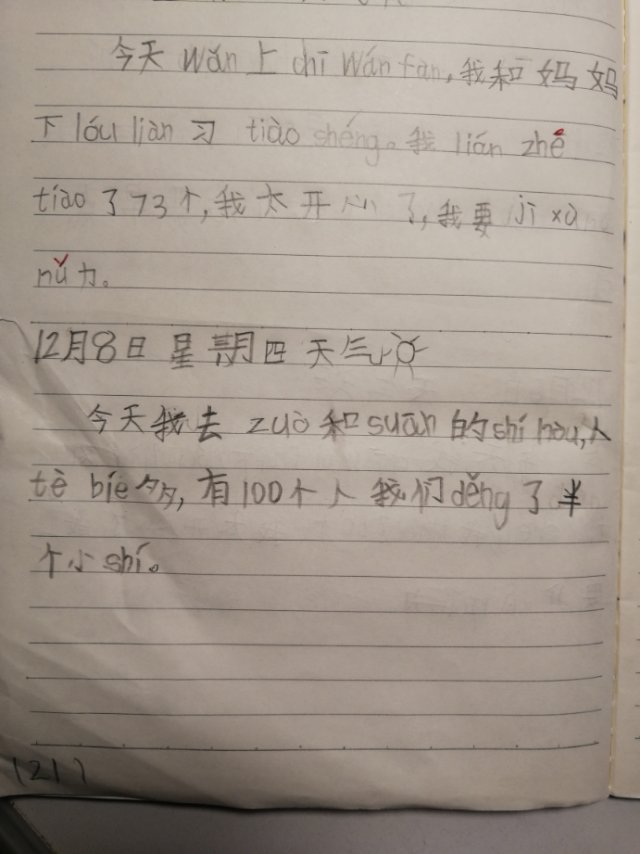 今天 wǎn 上 chī wán fàn，我和妈妈
下 lóu liàn 习 tiào shéng。我 lián zhē
tiào 了73个，我太开心了，我要 jī xù
nǔ 力。
12月8日 星期四 天气
今天我去 zuò 和 suān 的 shí hòu，人
tè bíe 多，有100个人我们 děng 了半
个小 shí。